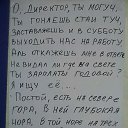 О, директор, ты могуч,
Ты гоняешь стаи туч,
Заставляешь и в субботу
Выходить нас на работу
Аль откажешь мне в ответе
Не видал ли где на свете
Ты зарплаты годовой?
Я ищу её...
- Постой, есть на севере
гора, в ней глубокая
нора, в той норе на трех